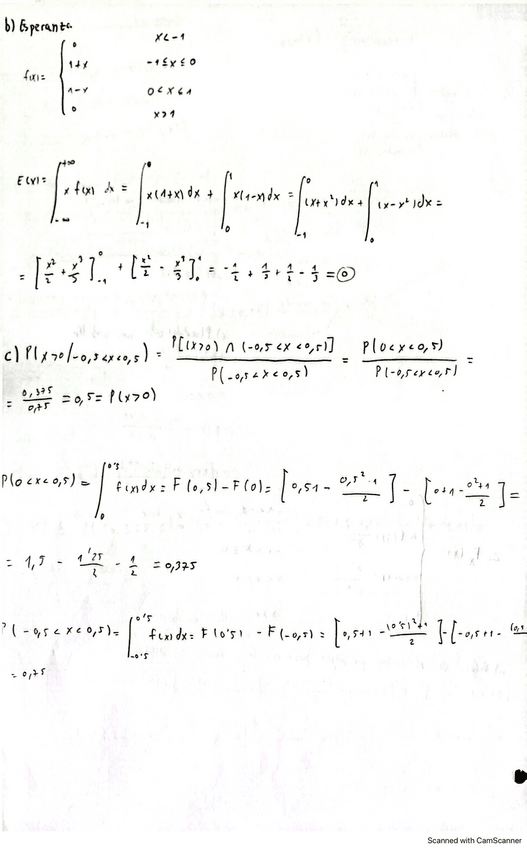 b) Esperanza
f(x) = { 0 x < -1
1+x -1 ≤ x ≤ 0
1-x 0 < x ≤ 1
0 x > 1
E(x) = ∫_{-∞}^{+∞} x f(x) dx = ∫_{-1}^{0} x(1+x) dx + ∫_{0}^{1} x(1-x) dx = ∫_{-1}^{0} (x+x²) dx + ∫_{0}^{1} (x-x²) dx =
= [x²/2 + x³/3]_{-1}^{0} + [x²/2 - x³/3]_{0}^{1} = -1/2 + 1/3 + 1/2 - 1/3 = 0
c) P(x>0/-0,5<x<0,5) = P[(x>0) ∩ (-0,5<x<0,5)] / P(-0,5<x<0,5) = P(0<x<0,5) / P(-0,5<x<0,5) =
= 0,375/0,75 = 0,5 = P(x>0)
P(0<x<0,5) = ∫_{0}^{0'5} f(x) dx = F(0,5) - F(0) = [0,51 - 0,5²·1/2] - [0+1 - 0²+1/2] =
= 1,5 - 1'25/2 - 1/2 = 0,375
P(-0,5<x<0,5) = ∫_{-0'5}^{0'5} f(x) dx = F(0'5) - F(-0,5) = [0,5+1 - (0'5)²+1/2] - [-0,5+1 -
= 0,75
Scanned with CamScanner